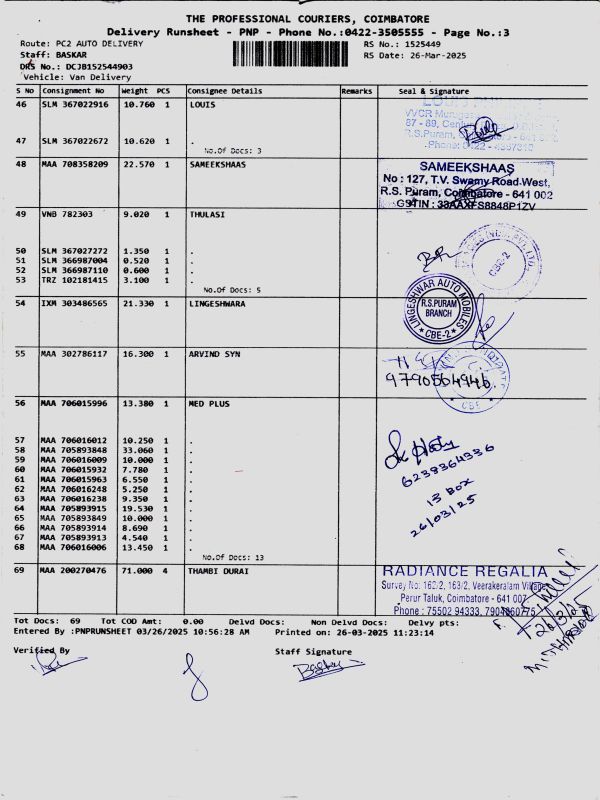 THE PROFESSIONAL COURIERS, COIMBATORE
Delivery Runsheet - PNP - Phone No.:0422-3505555 - Page No.:3
Route: PC2 AUTO DELIVERY RS No.: 1525449
Staff: BASKAR RS Date: 26-Mar-2025
DRS No.: DCJB152544903
Vehicle: Van Delivery
S No Consignment No Weight PCS Consignee Details Remarks Seal & Signature
46 SLM 367022916 10.760 1 LOUIS
47 SLM 367022672 10.620 1 .
No.Of Docs: 3
VVCR
87 - 89,
R.S.Puram,
Phone:
48 MAA 708358209 22.570 1 SAMEEKSHAAS
SAMEEKSHAAS
No : 127, T.V. Swamy Road West,
R.S. Puram, Coimbatore - 641 002
GSTIN : 33AAXFS8848P1ZV
49 VNB 782303 9.020 1 THULASI
50 SLM 367027272 1.350 1 .
51 SLM 366987004 0.520 1 .
52 SLM 366987110 0.600 1 .
53 TRZ 102181415 3.100 1 .
No.Of Docs: 5
CBE-2
54 IXM 303486565 21.330 1 LINGESHWARA
LINGESHWAR AUTO MOBILES
R.S.PURAM
BRANCH
* CBE-2 *
55 MAA 302786117 16.300 1 ARVIND SYN
9790564946
* CBE *
56 MAA 706015996 13.380 1 MED PLUS
57 MAA 706016012 10.250 1 .
58 MAA 705893848 33.060 1 .
59 MAA 706016009 10.000 1 .
60 MAA 706015932 7.780 1 .
61 MAA 706015963 6.550 1 .
62 MAA 706016248 5.250 1 .
63 MAA 706016238 9.350 1 .
64 MAA 705893915 19.530 1 .
65 MAA 705893849 10.000 1 .
66 MAA 705893914 8.690 1 .
67 MAA 705893913 4.540 1 .
68 MAA 706016006 13.450 1 .
No.Of Docs: 13
6238364336
13 BOX
26/03/25
69 MAA 200270476 71.000 4 THAMBI DURAI
RADIANCE REGALIA
Survey No: 162/2, 163/2, Veerakeralam Village
Perur Taluk, Coimbatore - 641 007
Phone : 75502 94333, 7904860775
26/3/25
Tot Docs: 69 Tot COD Amt: 0.00 Delvd Docs: Non Delvd Docs: Delvy pts:
Entered By :PNPRUNSHEET 03/26/2025 10:56:28 AM Printed on: 26-03-2025 11:23:14
Verified By Staff Signature